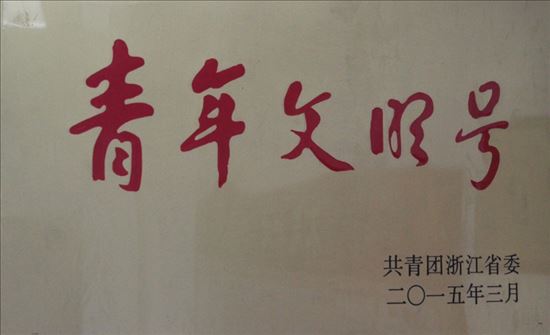 青年文明号
共青团浙江省委
二〇一五年三月